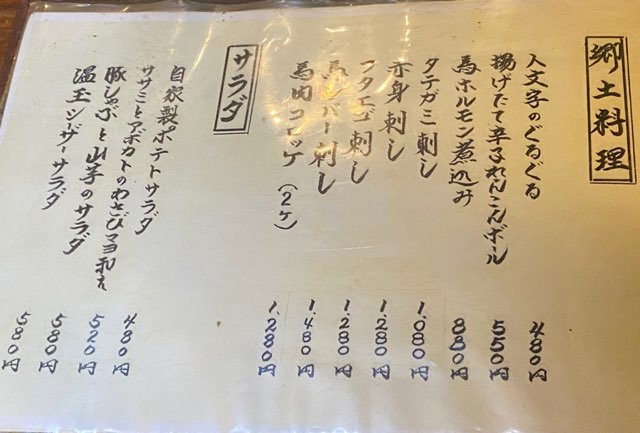 郷土料理
人文字のぐるぐる 480円
揚げたて辛子れんこんボール 550円
馬ホルモン煮込み 880円
タテガミ刺し 1.080円
赤身刺し 1.280円
フタエゴ刺し 1.280円
馬レバー刺し 1.480円
馬肉コロッケ(2ケ) 1.280円
サラダ
自家製ポテトサラダ 480円
ササミとアボカドのわさびマヨ和え 520円
豚しゃぶと山芋のサラダ 580円
温玉シーザーサラダ 580円